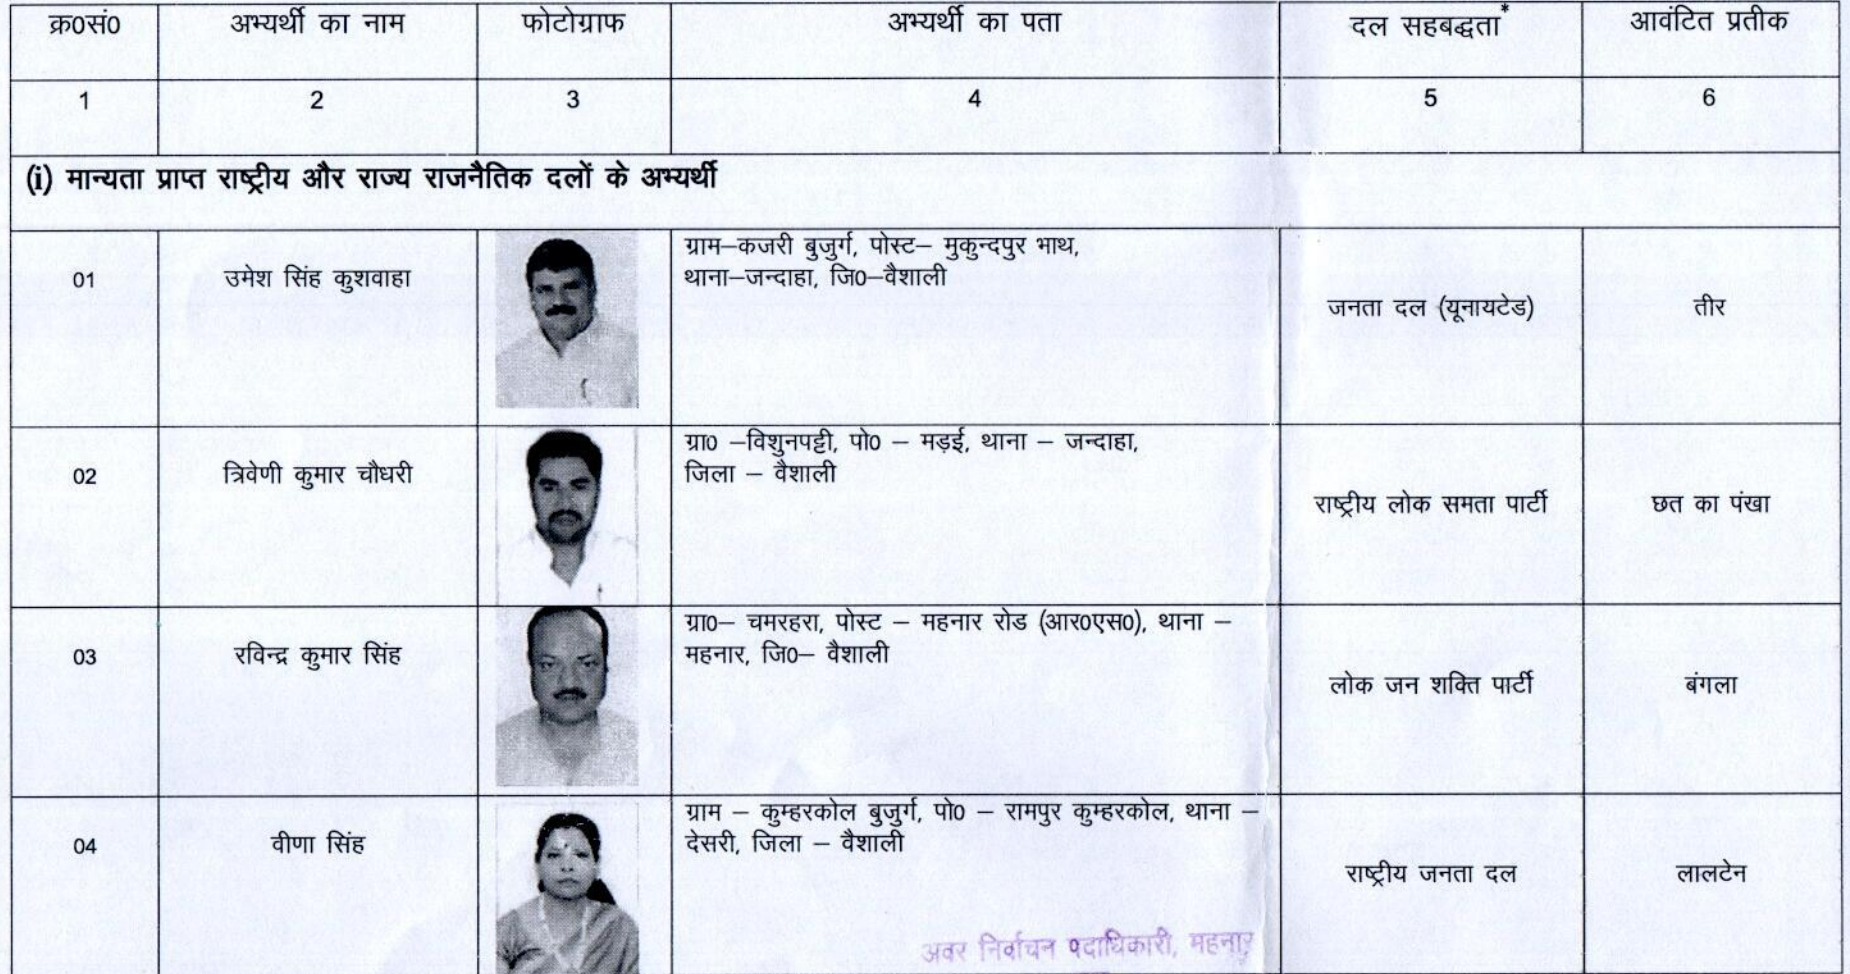 क्र0सं0 अभ्यर्थी का नाम फोटोग्राफ अभ्यर्थी का पता दल सहबद्धता* आवंटित प्रतीक
1 2 3 4 5 6
(i) मान्यता प्राप्त राष्ट्रीय और राज्य राजनैतिक दलों के अभ्यर्थी
01 उमेश सिंह कुशवाहा ग्राम–कजरी बुजुर्ग, पोस्ट– मुकुन्दपुर भाथ,
थाना–जन्दाहा, जि0–वैशाली
जनता दल (यूनायटेड) तीर
02 त्रिवेणी कुमार चौधरी ग्रा0 –विशुनपट्टी, पो0 – मड़ई, थाना – जन्दाहा,
जिला – वैशाली
राष्ट्रीय लोक समता पार्टी छत का पंखा
03 रविन्द्र कुमार सिंह ग्रा0– चमरहरा, पोस्ट – महनार रोड (आर0एस0), थाना –
महनार, जि0– वैशाली
लोक जन शक्ति पार्टी बंगला
04 वीणा सिंह ग्राम – कुम्हरकोल बुजुर्ग, पो0 – रामपुर कुम्हरकोल, थाना –
देसरी, जिला – वैशाली
राष्ट्रीय जनता दल लालटेन
अवर निर्वाचन पदाधिकारी, महनार